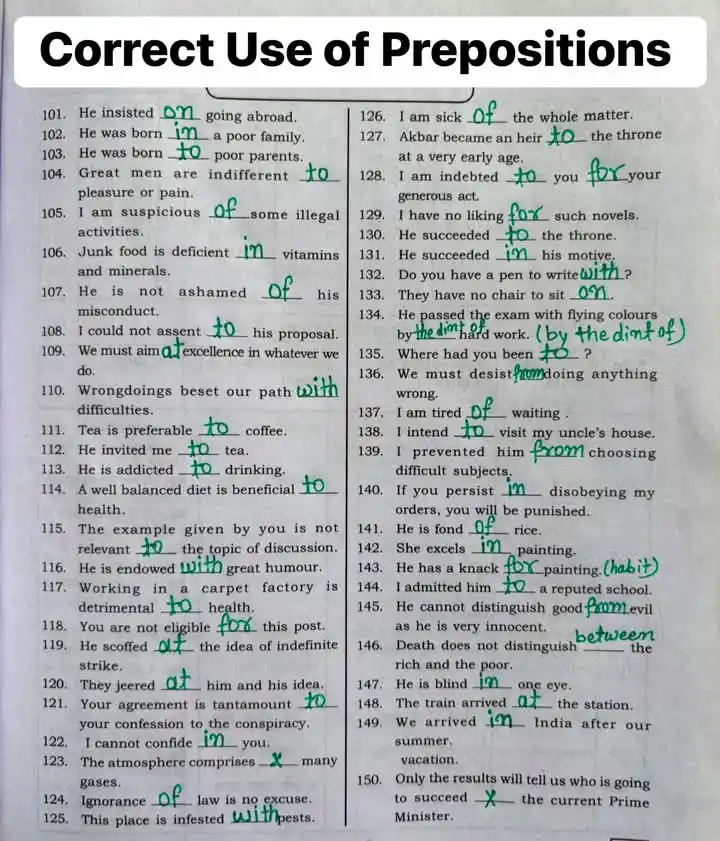 Correct Use of Prepositions
101. He insisted on going abroad.
102. He was born in a poor family.
103. He was born to poor parents.
104. Great men are indifferent to
pleasure or pain.
105. I am suspicious of some illegal
activities.
106. Junk food is deficient in vitamins
and minerals.
107. He is not ashamed of his
misconduct.
108. I could not assent to his proposal.
109. We must aim at excellence in whatever we
do.
110. Wrongdoings beset our path with
difficulties.
111. Tea is preferable to coffee.
112. He invited me to tea.
113. He is addicted to drinking.
114. A well balanced diet is beneficial to
health.
115. The example given by you is not
relevant to the topic of discussion.
116. He is endowed with great humour.
117. Working in a carpet factory is
detrimental to health.
118. You are not eligible for this post.
119. He scoffed at the idea of indefinite
strike.
120. They jeered at him and his idea.
121. Your agreement is tantamount to
your confession to the conspiracy.
122. I cannot confide in you.
123. The atmosphere comprises x many
gases.
124. Ignorance of law is no excuse.
125. This place is infested with pests.
126. I am sick of the whole matter.
127. Akbar became an heir to the throne
at a very early age.
128. I am indebted to you for your
generous act.
129. I have no liking for such novels.
130. He succeeded to the throne.
131. He succeeded in his motive.
132. Do you have a pen to write with?
133. They have no chair to sit on.
134. He passed the exam with flying colours
by the dint of hard work. (by the dint of)
135. Where had you been to ?
136. We must desist from doing anything
wrong.
137. I am tired of waiting .
138. I intend to visit my uncle's house.
139. I prevented him from choosing
difficult subjects.
140. If you persist in disobeying my
orders, you will be punished.
141. He is fond of rice.
142. She excels in painting.
143. He has a knack for painting. (habit)
144. I admitted him to a reputed school.
145. He cannot distinguish good from evil
as he is very innocent.
146. Death does not distinguish between the
rich and the poor.
147. He is blind in one eye.
148. The train arrived at the station.
149. We arrived in India after our
summer.
vacation.
150. Only the results will tell us who is going
to succeed x the current Prime
Minister.